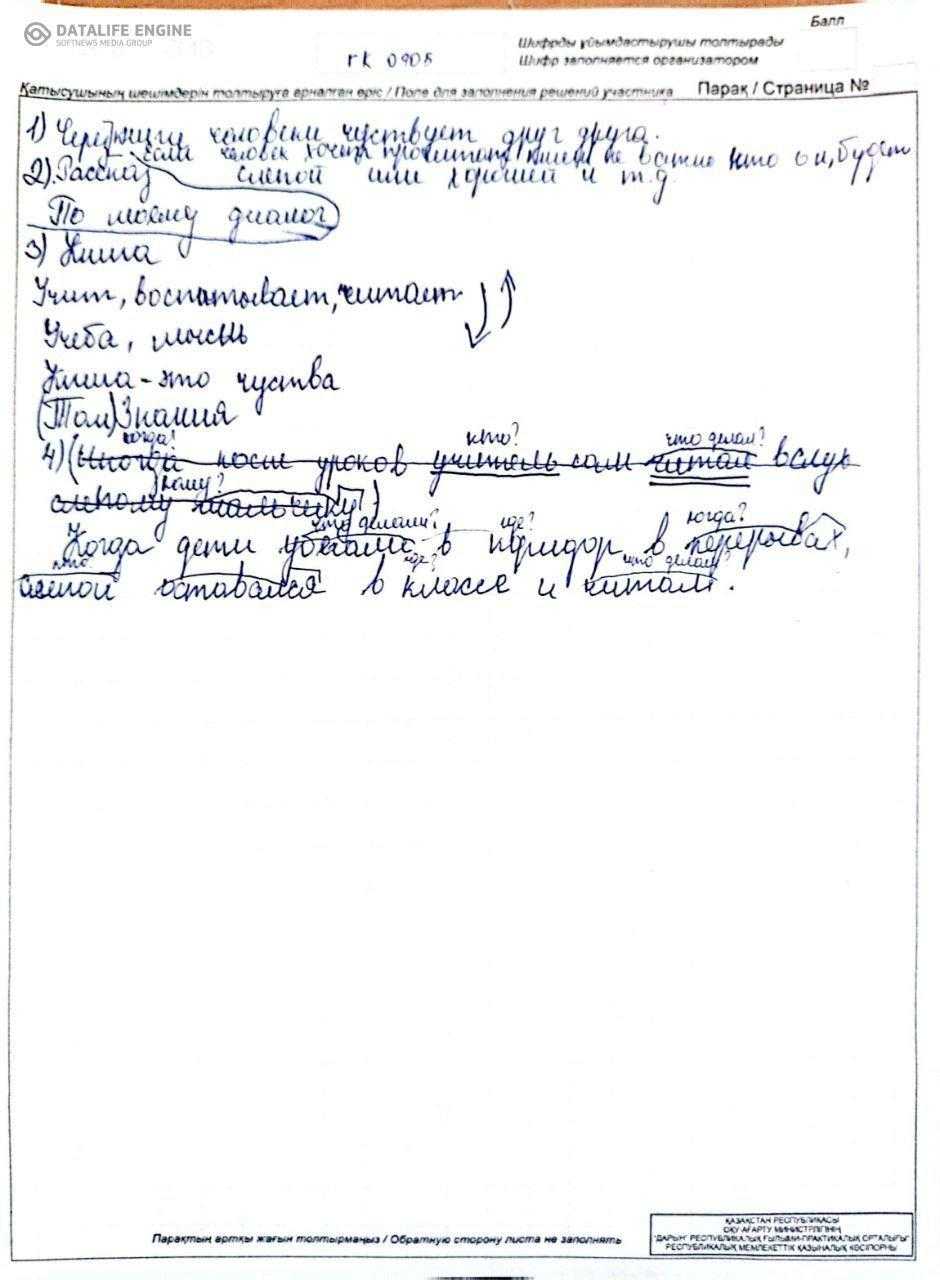 DATALIFE ENGINE
SOFTNEWS MEDIA GROUP
Балл
rk 0905
Шифрды ұйымдастырушы толтырады
Шифр заполняется организатором
Қатысушының шешімдерін толтыруға арналған өріс / Поле для заполнения решений участника Парақ / Страница №
1) Через книги человеки чуствует друг друга.
Если человек хочет прочитать книги не важно кто он, будет
2) Рассказ слепой или хороший и т.д.
По моему диалог
3) Книга
Учит, воспитывает, читает
Учеба, мысль
Книга - это чуства
(Том) Знания
когда? кто? что делал?
4) (Иногда после уроков учитель сам читал вслух
кому?
слепому мальчику)
что делали? где? когда?
Когда дети убегали в коридор в перерывах,
кто? где? что делал?
слепой оставался в классе и читал.
Парақтың артқы жағын толтырмаңыз / Обратную сторону листа не заполнять
ҚАЗАҚСТАН РЕСПУБЛИКАСЫ
ОҚУ-АҒАРТУ МИНИСТРЛІГІНІҢ
"ДАРЫН" РЕСПУБЛИКАЛЫҚ ҒЫЛЫМИ-ПРАКТИКАЛЫҚ ОРТАЛЫҒЫ"
РЕСПУБЛИКАЛЫҚ МЕМЛЕКЕТТІК ҚАЗЫНАЛЫҚ КӘСІПОРНЫ